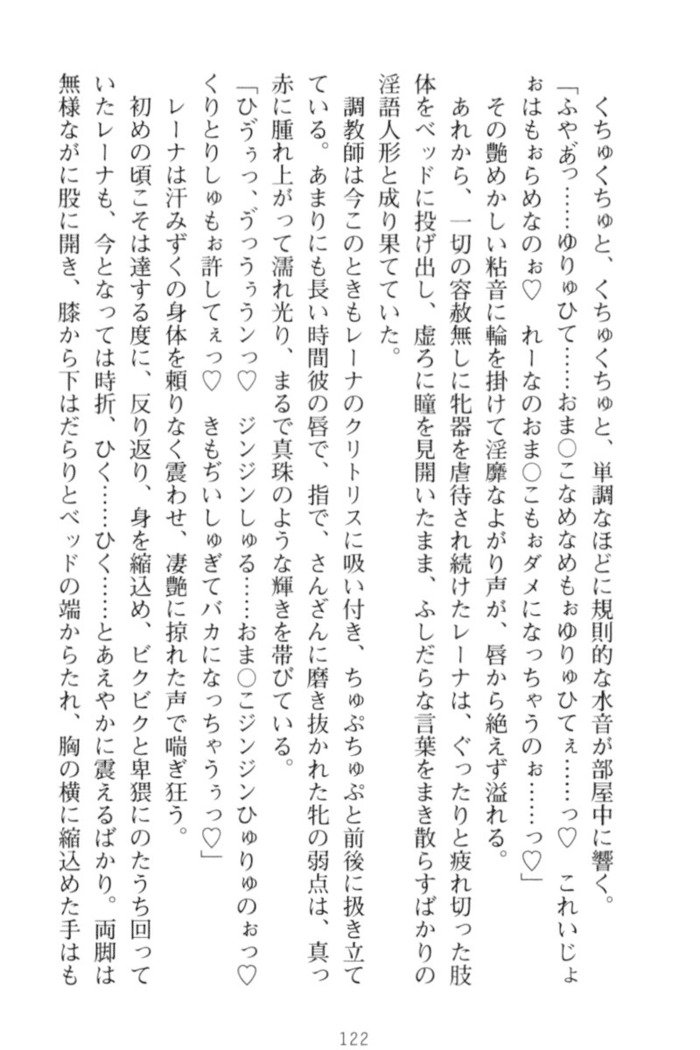 くちゅくちゅと、くちゅくちゅと、単調なほどに規則的な水音が部屋中に響く。
「ふやあ゛っ……ゆりゅひて……おま○こなめなめもぉゆりゅひてぇ……っ♡　これいじょ
ぉはもぉらめなのぉ♡　れーなのおま○こもぉダメになっちゃうのぉ……っ♡」
その艶めかしい粘音に輪を掛けて淫靡なよがり声が、唇から絶えず溢れる。
あれから、一切の容赦無しに牝器を虐待され続けたレーナは、ぐったりと疲れ切った肢
体をベッドに投げ出し、虚ろに瞳を見開いたまま、ふしだらな言葉をまき散らすばかりの
淫語人形と成り果てていた。
調教師は今このときもレーナのクリトリスに吸い付き、ちゅぷちゅぷと前後に扱き立て
ている。あまりにも長い時間彼の唇で、指で、さんざんに磨き抜かれた牝の弱点は、真っ
赤に腫れ上がって濡れ光り、まるで真珠のような輝きを帯びている。
「ひう゛ぅっ、う゛っうぅうンっ♡　ジンジンしゅる……おま○こジンジンひゅりゅのぉっ♡
くりとりしゅもぉ許してぇっ♡　きもぢいしゅぎてバカになっちゃうぅっ♡」
レーナは汗みずくの身体を頼りなく震わせ、凄艶に掠れた声で喘ぎ狂う。
初めの頃こそは達する度に、反り返り、身を縮込め、ビクビクと卑猥にのたうち回って
いたレーナも、今となっては時折、ひく……ひく……とあえやかに震えるばかり。両脚は
無様ながに股に開き、膝から下はだらりとベッドの端からたれ、胸の横に縮込めた手はも
122